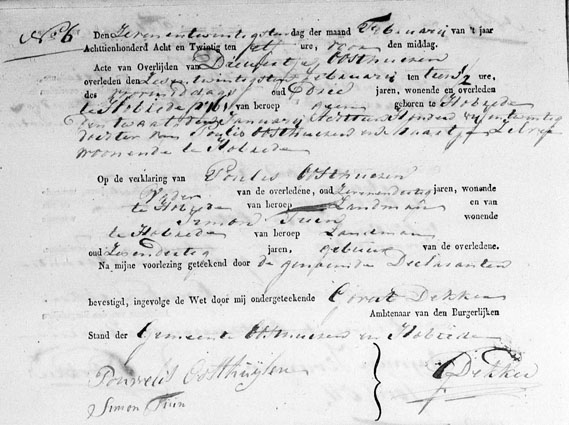 No 6 Den Zevenentwintigsten dag der maand Februarij van 't jaar
Achttienhonderd Acht en Twintig ten ure, voor den middag.
Acte van Overlijden van Oosthuisen
overleden den Zesentwintigsten Februarij ten ure,
des oud jaren, wonende en overleden
te Hobrede van beroep geen geboren te Hobrede
den Januarij
dochter van Poulis Oosthuisen en
woonende te Hobrede
Op de verklaring van Poulis Oosthuisen
Vader van de overledene, oud Zevenendertig jaren, wonende
te Hobrede van beroep Landman en van
Simon Tuin wonende
te Hobrede van beroep Landman
oud Zesendertig jaren, gebuure van de overledene.
Na mijne voorlezing geteekend door de genoemde Declaranten
bevestigd, ingevolge de Wet door mij ondergeteekende Dekker
Ambtenaar van den Burgerlijken
Stand der Gemeente Oosthuisen en Hobrede
Pouwelis Oosthuijsen
Dekker
Simon Tuin